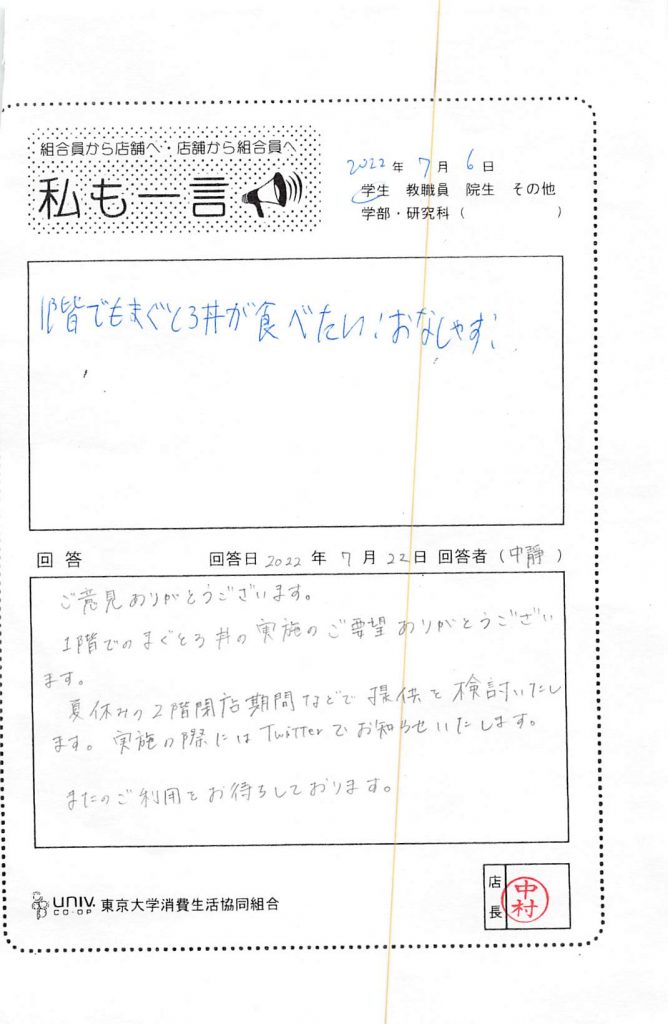 組合員から店舗へ・店舗から組合員へ
私も一言
2022年 7月 6日
学生 教職員 院生 その他
学部・研究科（ ）
1階でもまぐとろ丼が食べたい！おなしゃす！
回答 回答日 2022年 7月 22日 回答者（中静）
ご意見ありがとうございます。
1階でのまぐとろ丼の実施のご要望ありがとうござい
ます。
夏休みの2階閉店期間などで提供を検討いたし
ます。実施の際にはTwitterでお知らせいたします。
またのご利用をお待ちしております。
UNIV. CO-OP 東京大学消費生活協同組合
店長 中村